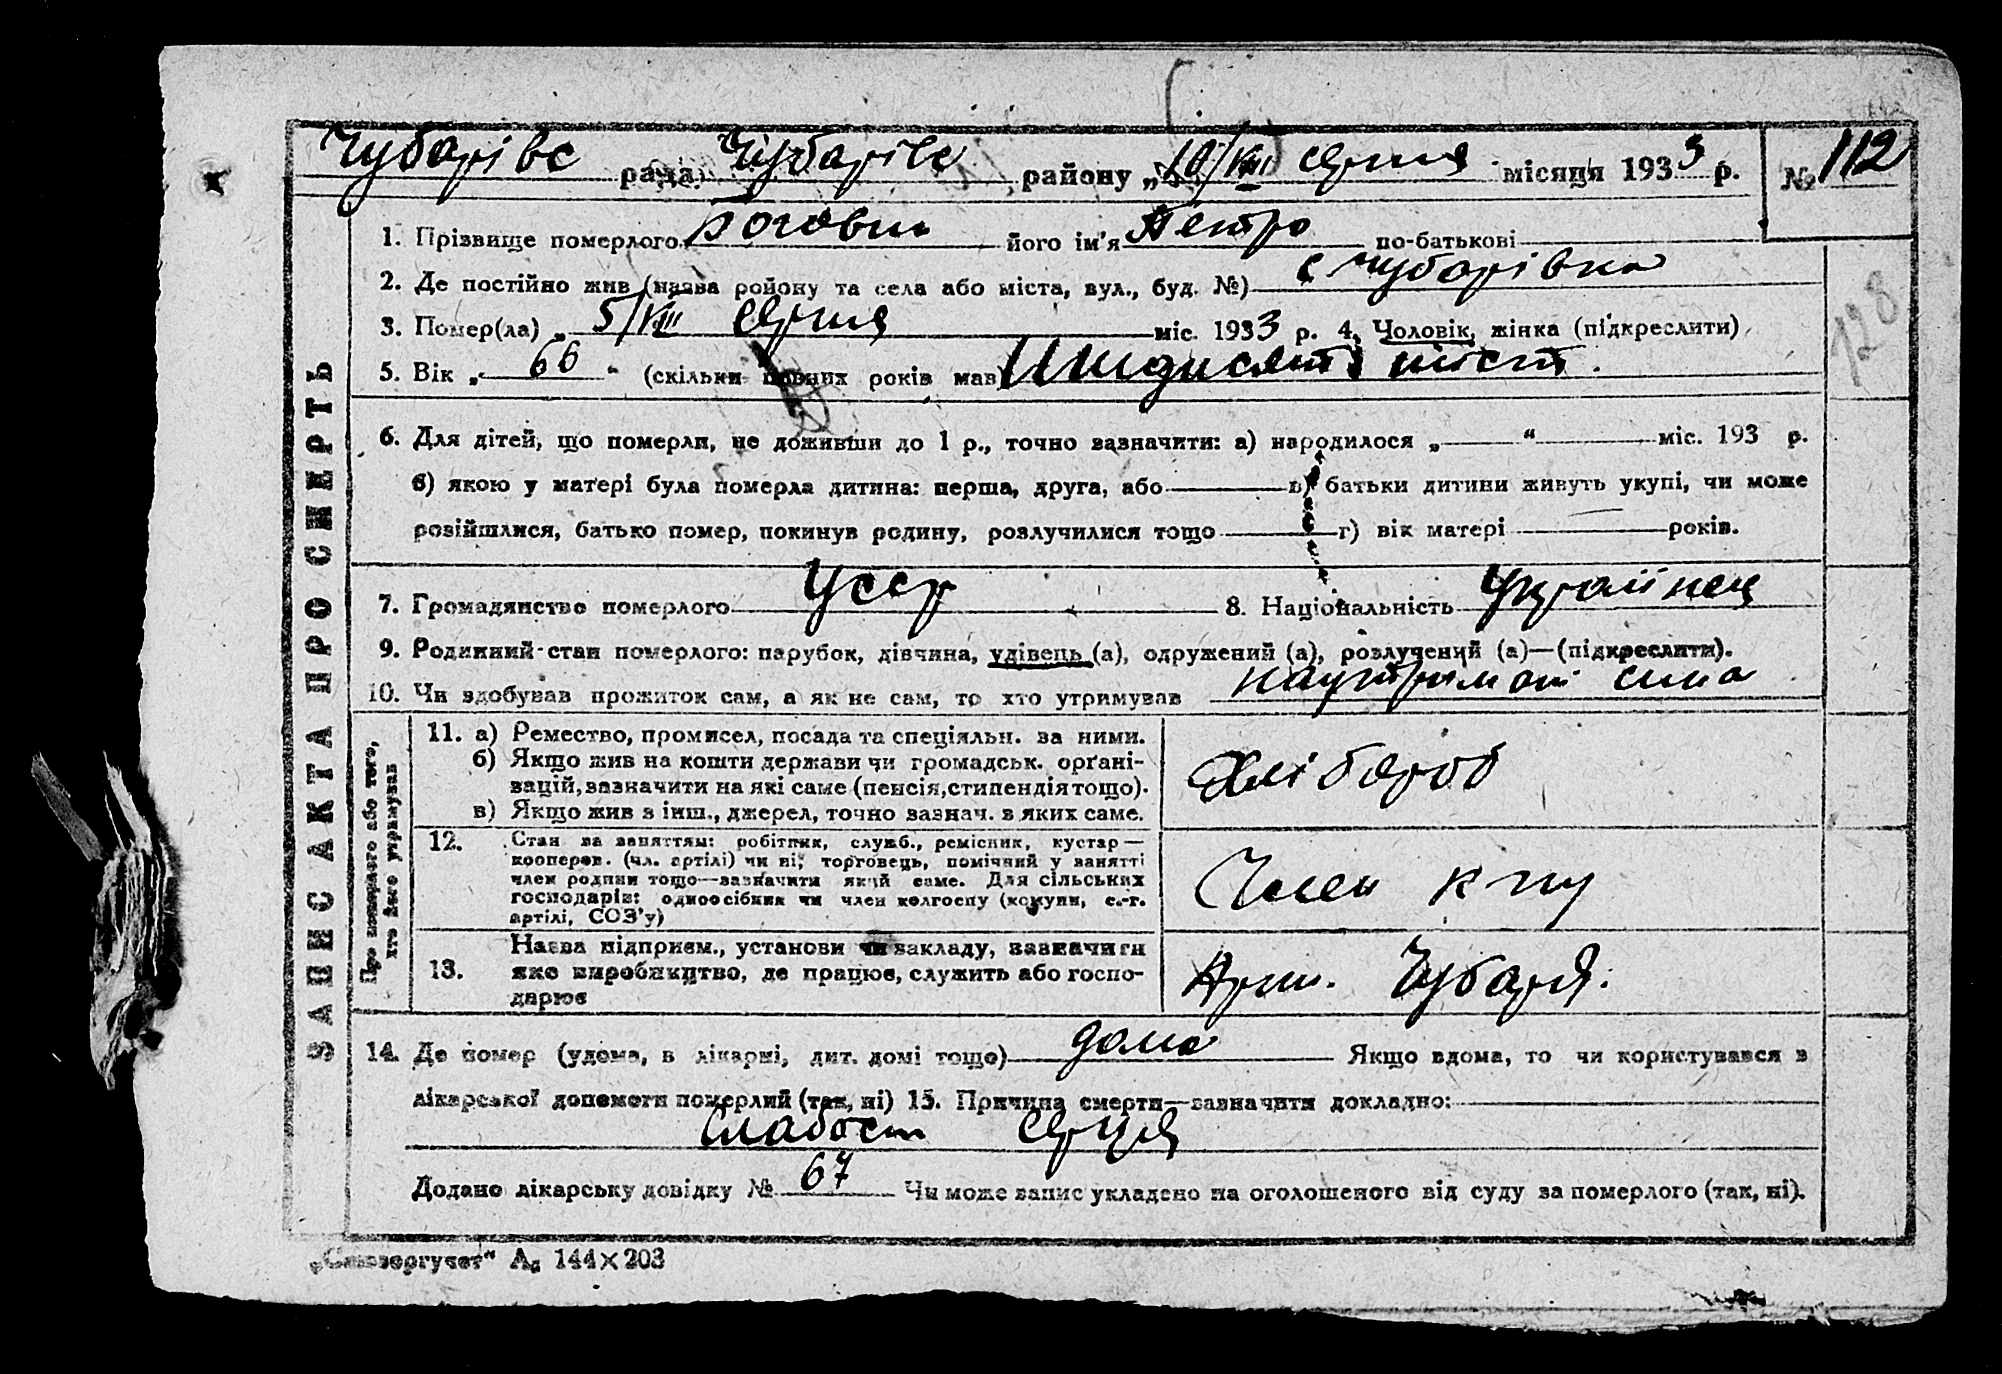 Чубарівс рада Чубарівс району „10/VIII серпня місяця 1933 р. № 112
1. Прізвище померлого його ім'я Петро по-батькові
2. Де постійно жив (назва району та села або міста, вул., буд. №) с Чубарівка
3. Помер(ла) „ 5/VIII серпня міс. 1933 р. 4. Чоловік, жінка (підкреслити)
128
5. Вік „ 66 “ (скільки повних років мав) Шидисят шіст.
6. Для дітей, що померли, не доживши до 1 р., точно вазначити: а) народилося „ “ міс. 193 р.
б) якою у матері була померла дитина: перша, друга, або в) батьки дитини живуть укупі, чи може
розійшлися, батько помер, покинув родину, розлучилися тощо г) вік матері років.
7. Громадянство померлого Усср 8. Національність Украінец
9. Родинний стан померлого: парубок, дівчина, удівець (а), одружений (а), розлучений (а)—(підкреслити).
10. Чи здобував прожиток сам, а як не сам, то хто утримував наутримані сина
ЗАПИС АКТА ПРО СМЕРТЬ
Про померлого або того, хто його утримував
11. а) Ремество, промисел, посада та спеціяльн. за ними.
б) Якщо жив на кошти держави чи громадськ. органі-
зацій, зазначити на які саме (пенсія, стипендія тощо).
в) Якщо жив з інш., джерел, точно зазнач. з яких саме.
Хлібороб
12. Стан за заняттям: робітник, служб., ремісник, кустар—
кооперов. (чл. артілі) чи ні, торговець, помічний у занятті
член родини тощо—зазначити який саме. Для сільських
господарів: одноосібник чи член колгоспу (комуни, с.-г.
артілі, СОЗ'у)
Член
13. Назва підприєм., установи чи закладу, зазначити
яке виробництво, де працює, служить або госпо-
дарює
Арт. Чубаря.
14. Де помер (удома, в лікарні, дит. домі тощо) дома Якщо вдома, то чи користувався з
лікарської допомоги померлий (так, ні) 15. Причина смерти—зазначити докладно:
Слабост серця
Додано лікарську довідку № 67 Чи може запис укладено на оголошеного від суду за померлого (так, ні).
А₅ 144×203